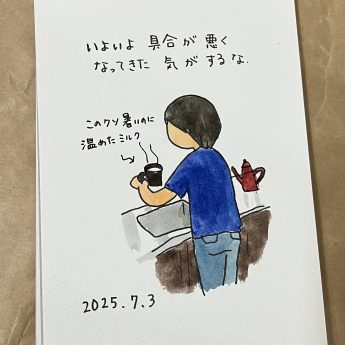 いよいよ 具合が 悪く
なってきた 気がするな.
このクソ暑いのに
温めたミルク
2025.7.3